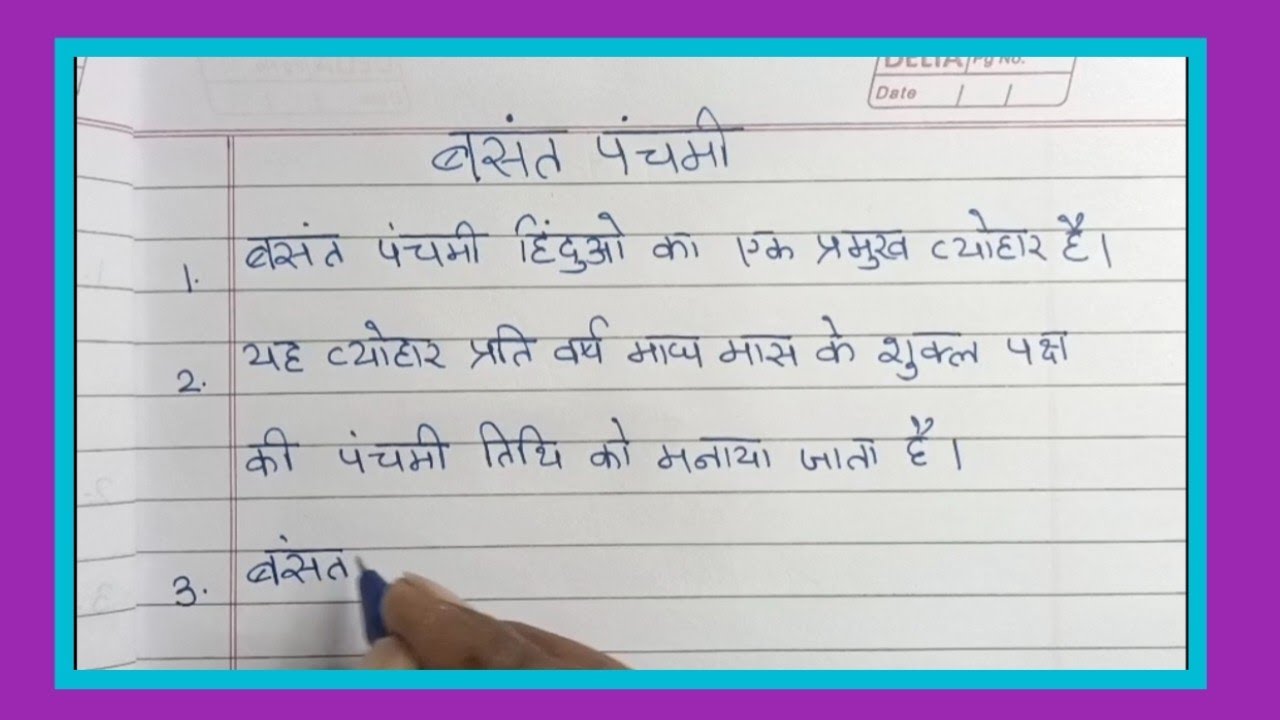 DELTA Pg No.
Date
बसंत पंचमी
1. बसंत पंचमी हिंदुओ का एक प्रमुख त्योहार है।
2. यह त्योहार प्रति वर्ष माघ मास के शुक्ल पक्ष
की पंचमी तिथि को मनाया जाता है।
3. बंसत